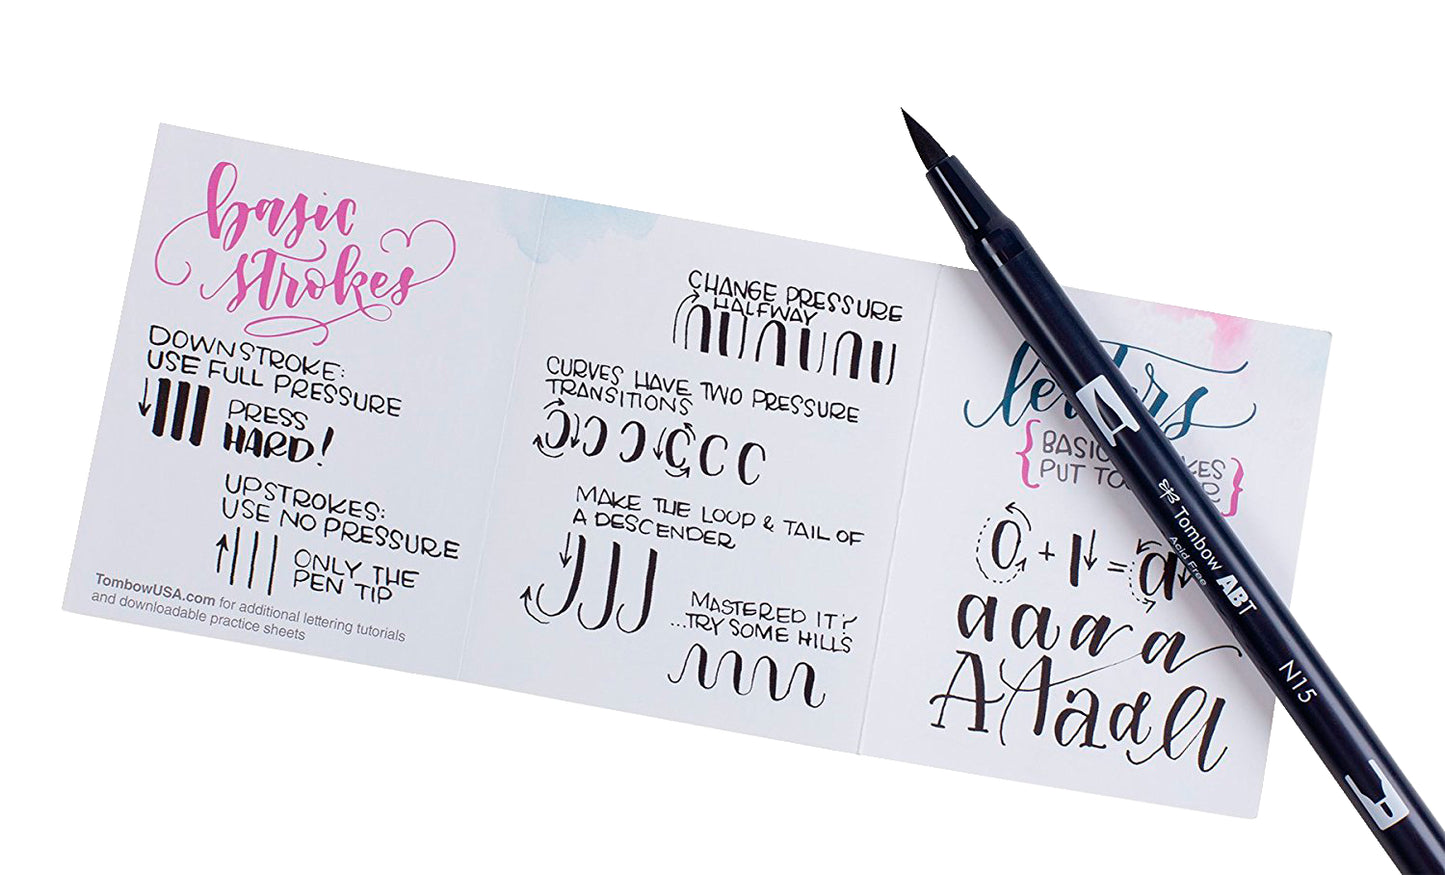 basic
strokes
DOWNSTROKE:
USE FULL PRESSURE
PRESS
HARD!
UPSTROKES:
USE NO PRESSURE
ONLY THE
PEN TIP
TombowUSA.com for additional lettering tutorials
and downloadable practice sheets
CHANGE PRESSURE
HALFWAY
CURVES HAVE TWO PRESSURE
TRANSITIONS
MAKE THE LOOP & TAIL OF
A DESCENDER
MASTERED IT?
...TRY SOME HILLS
letters
BASIC
PUT
a + l = a
a a a a
A A a a a
Tombow ABT
Acid Free
N15